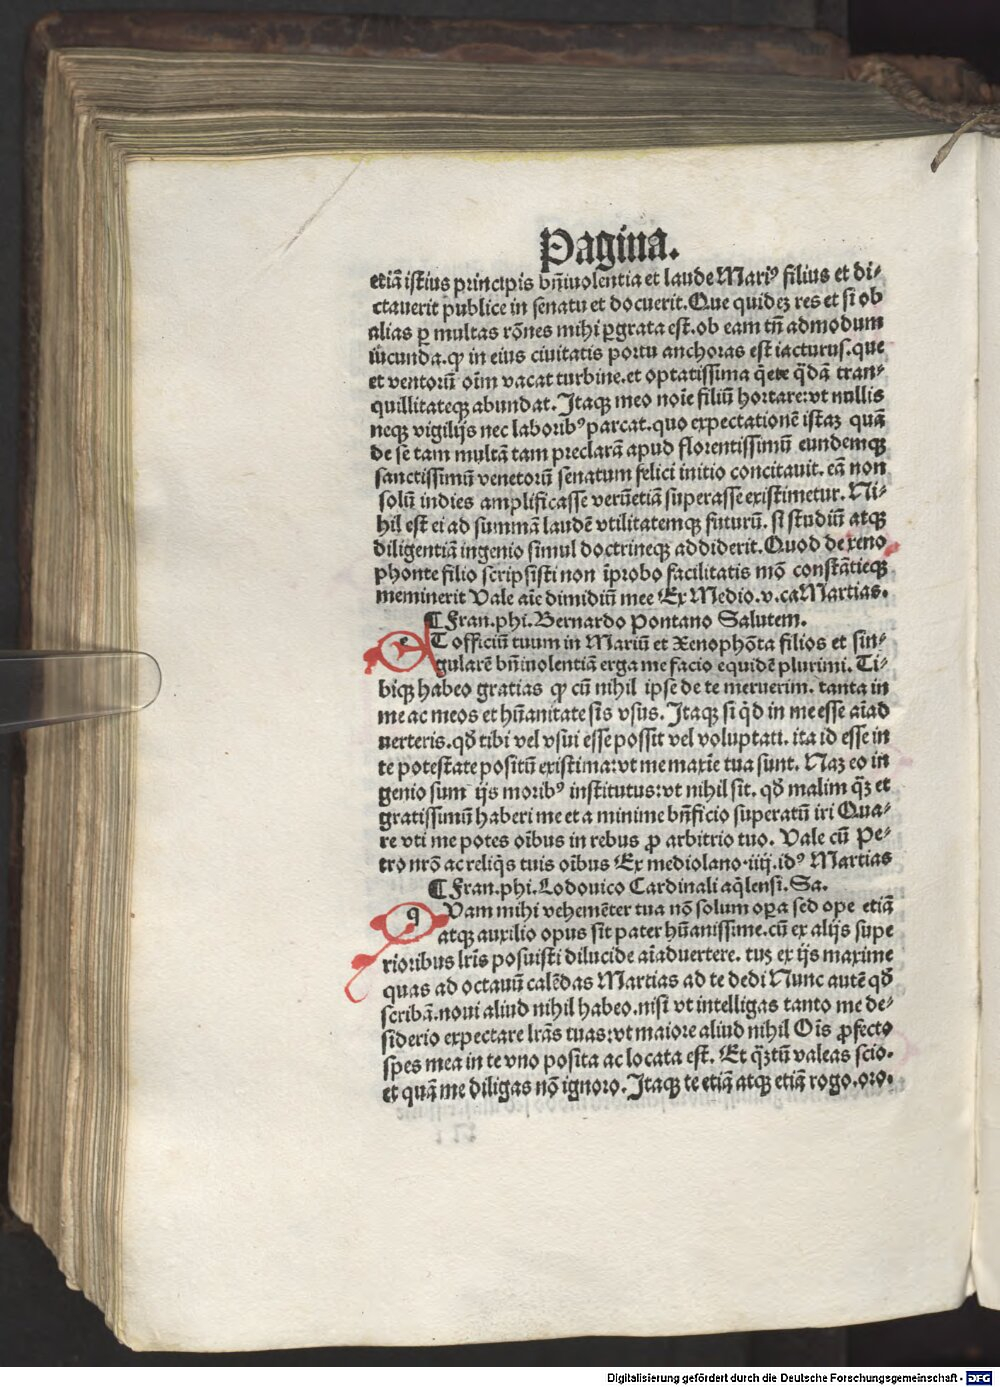 Pagina.
etiā istius principis bn̄iuolentia et laude Mariꝰ filius et di-
ctauerit publice in senatu et docuerit. Que quideʒ res et si ob
alias ꝑ multas rōnes mihi ꝑgrata est. ob eam tn̄ admodum
iūcunda. ꝙ in eius ciuitatis portu anchoras est iacturus. que
et ventorū oīm vacat turbine. et optatissima q̄ q̄dā tran-
quillitateqꝫ abundat. Itaqꝫ meo noīe filiū hortare: vt nullis
neqꝫ vigilijs nec laboribꝰ parcat. quo expectationē istaʒ quā
de se tam multā tam preclarā apud florentissimū eundemqꝫ
sanctissimū venetorū senatum felici initio concitauit. eā non
solū indies amplificasse verūetiā superasse existimetur. Ni-
hil est ei ad summā laudē vtilitatemqꝫ futurū. si studiū atqꝫ
diligentiā ingenio simul doctrineqꝫ addiderit. Quod de xeno
phonte filio scripsisti non īprobo facilitatis mō constātieqꝫ
meminerit Vale aīe dimidiū mee Ex Medio. v. ca Martias.
¶ Fran. phi. Bernardo Pontano Salutem.
eT officiū tuum in Mariū et Xenophōta filios et sin-
gularē bn̄iuolentiā erga me facio equidē plurimi. Ti-
biqꝫ habeo gratias ꝙ cū nihil ipse de te meruerim. tanta in
me ac meos et hūanitate sis vsus. Itaqꝫ si q̇d in me esse aīad
uerteris. qđ tibi vel vsui esse possit vel voluptati. ita id esse in
te potestate positū existima: vt me maxīe tua sunt. Naʒ eo in
genio sum ijs moribꝰ institutus: vt nihil sit. qđ malim q̄ʒ et
gratissimū haberi me et a minime bn̄ficio superatū iri Qua-
re vti me potes oībus in rebus ꝓ arbitrio tuo. Vale cū Pe-
tro nrō ac reliq̇s tuis oībus Ex mediolano. iiij. idꝰ Martias
¶ Fran. phi. Lodouico Cardinali aq̇lensi. Sa.
qVam mihi vehemēter tua nō solum oꝑa sed ope etiā
atqꝫ auxilio opus sit pater hūanissime. cū ex alijs supe
rioribus lrīs posuisti dilucide aīaduertere. tuʒ ex ijs maxime
quas ad octauū calēdas Martias ad te dedi Nunc autē qđ
scribā. noui aliud nihil habeo. nisi vt intelligas tanto me de-
siderio expectare lrās tuas: vt maiore aliud nihil Oīs ꝓfecto
spes mea in te vno posita ac locata est. Et q̄ʒtū valeas scio.
et quā me diligas nō ignoro. Itaqꝫ te etiā atqꝫ etiā rogo. oro.
Digitalisierung gefördert durch die Deutsche Forschungsgemeinschaft - DFG